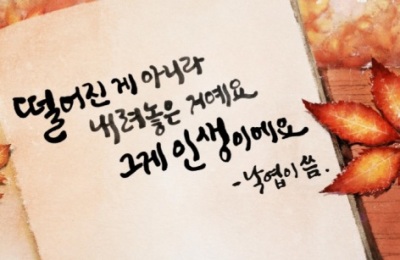 떨어진 게 아니라
내려놓은 거예요
그게 인생이에요
- 낙엽이 씀.